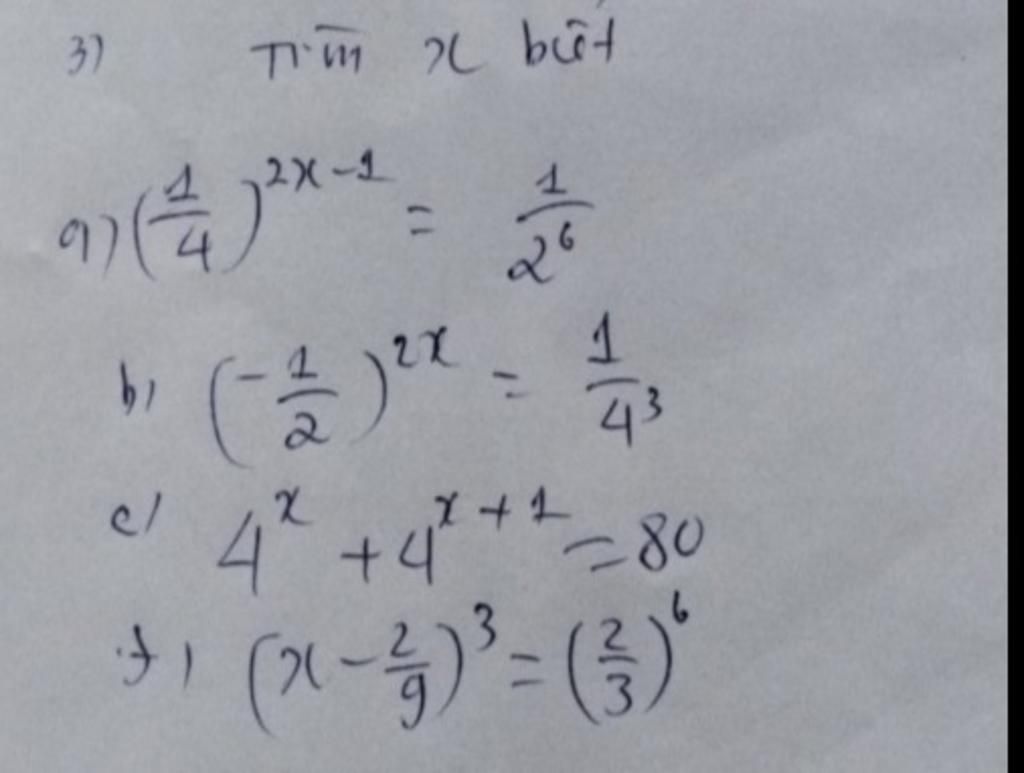 3) Tìm x biết
a) (1/4)^(2x-1) = 1/2^6
b) (-1/2)^(2x) = 1/4^3
c) 4^x + 4^(x+1) = 80
f) (x - 2/9)^3 = (2/3)^6